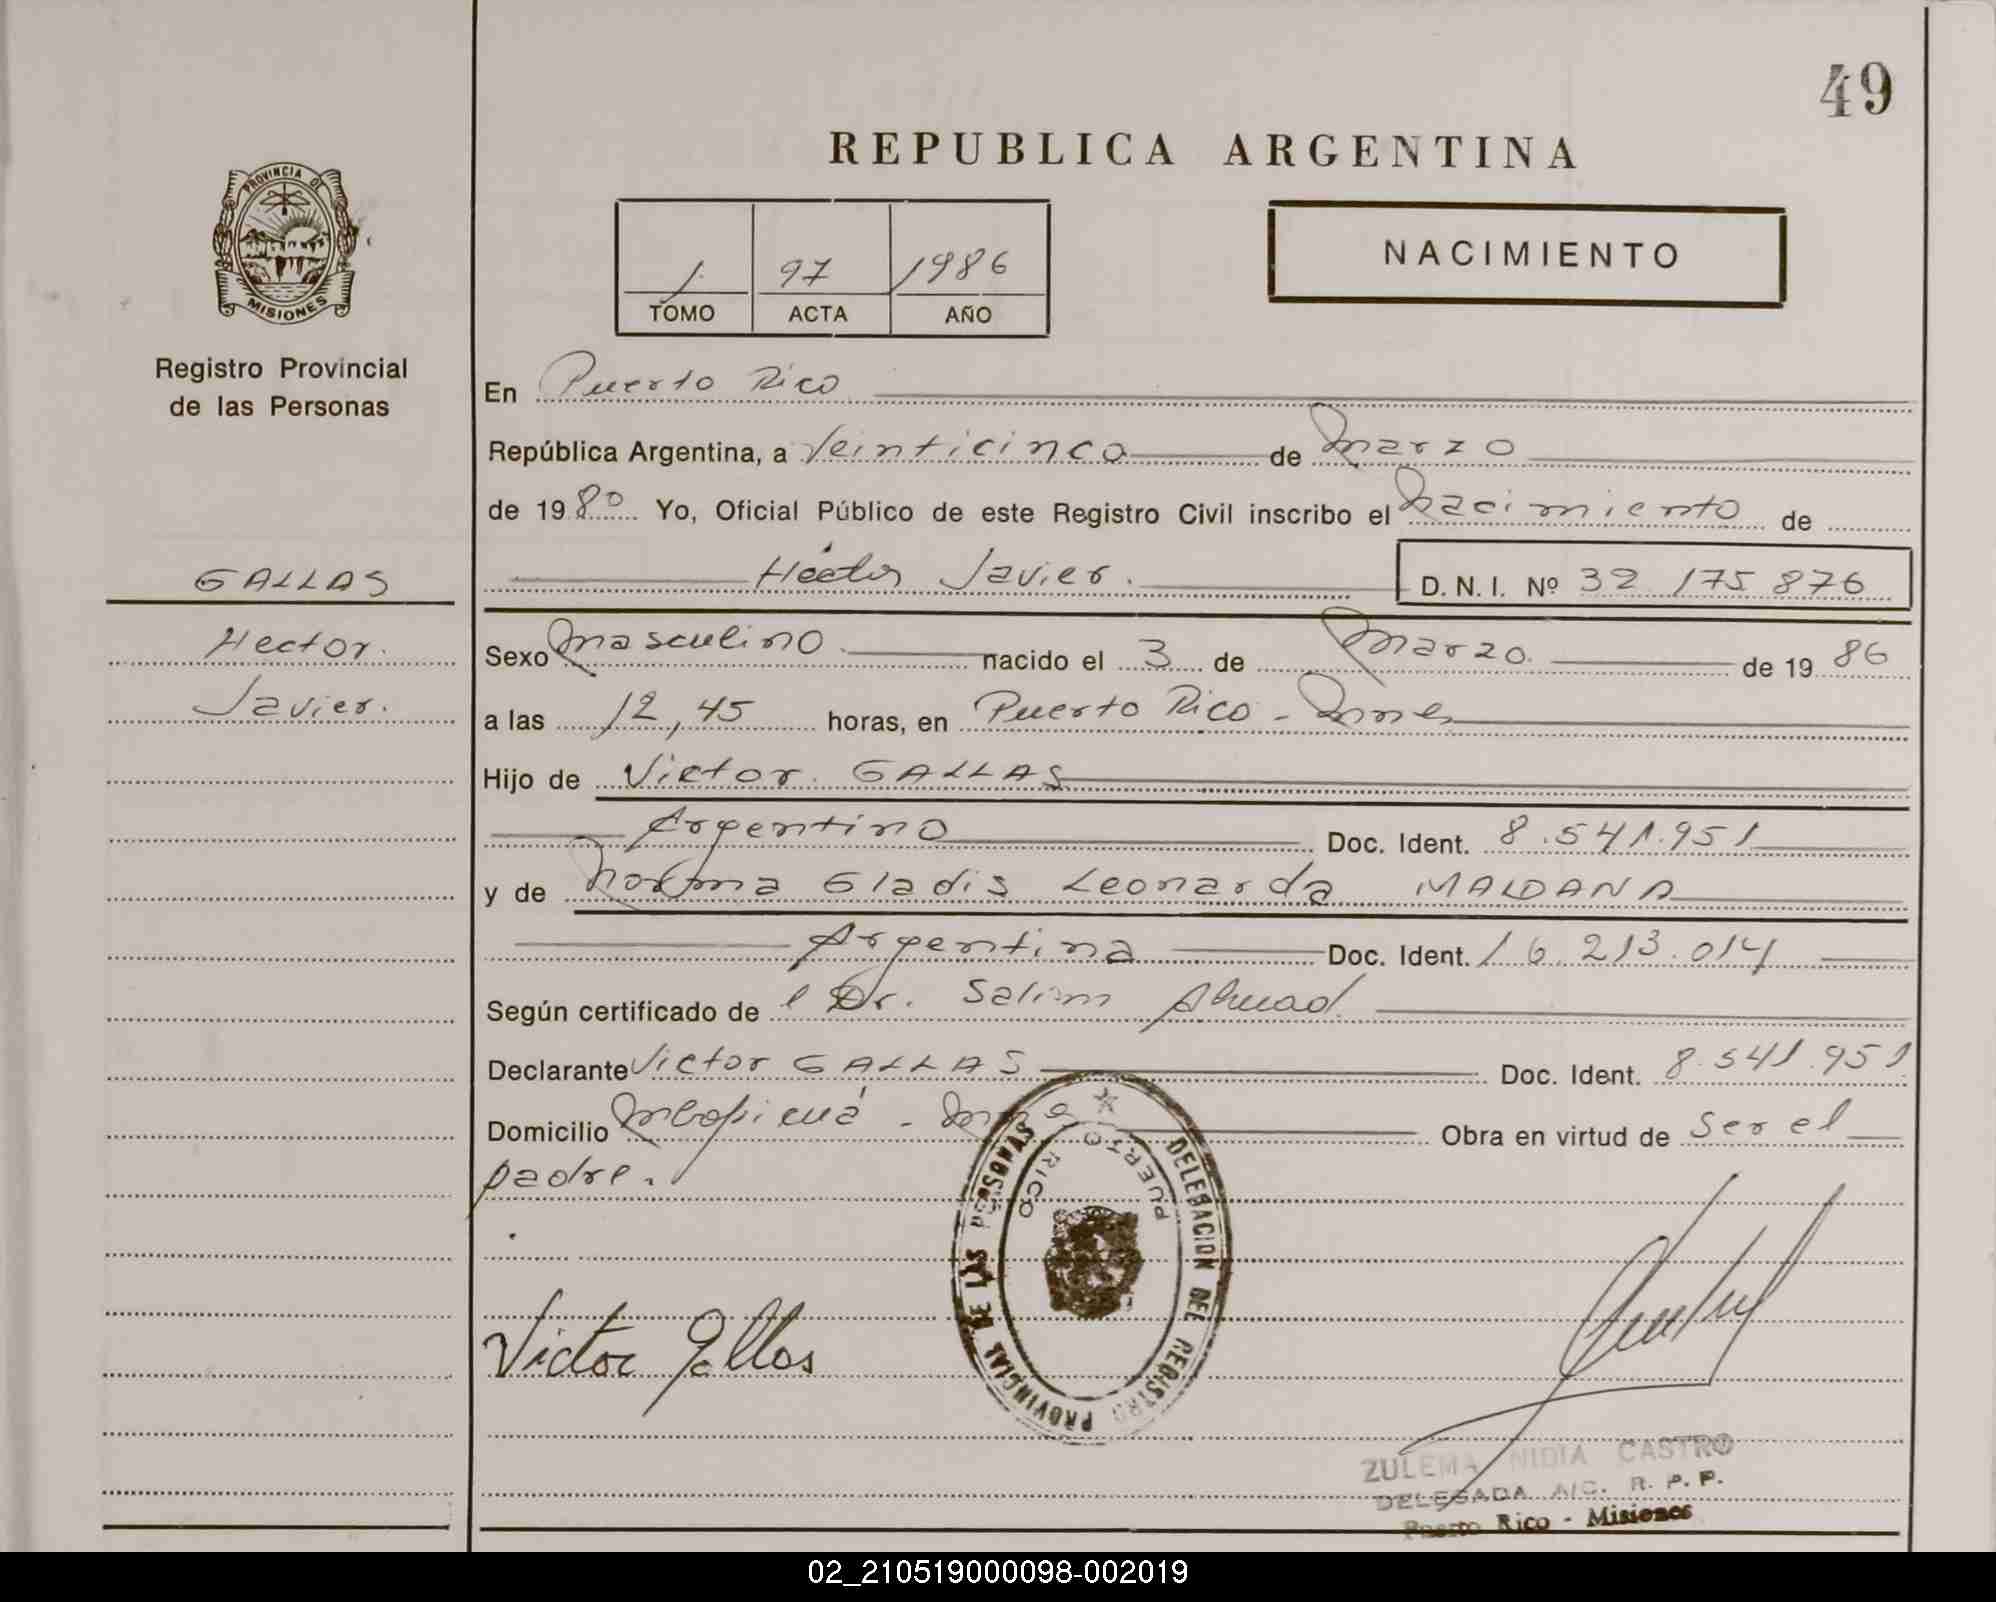 49
REPUBLICA ARGENTINA
PROVINCIA DE
MISIONES
1 97 1986
TOMO ACTA AÑO
NACIMIENTO
Registro Provincial
de las Personas
En Puerto Rico
República Argentina, a Veinticinco de Marzo
de 1980 Yo, Oficial Público de este Registro Civil inscribo el Nacimiento de
GALLAS
Héctor Javier. D. N. I. Nº 32 175 876
Hector
Javier.
Sexo Masculino nacido el 3 de Marzo de 19 86
a las 12,45 horas, en Puerto Rico - Mnes
Hijo de Victor GALLAS
Argentino Doc. Ident. 8.541.951
y de Norma Gladis Leonarda MALDANA
Argentina Doc. Ident. 16.213.014
Según certificado de l Dr. Salim Ahuad
Declarante Victor GALLAS Doc. Ident. 8.541.951
Domicilio Mbopicuá - Mnes Obra en virtud de ser el
padre.
DELEGACION DEL REGISTRO PROVINCIAL DE LAS PERSONAS
PUERTO RICO
Victor Gallas
ZULEMA NIDIA CASTRO
DELEGADA A/C. R. P. P.
Puerto Rico - Misiones
02_210519000098-002019